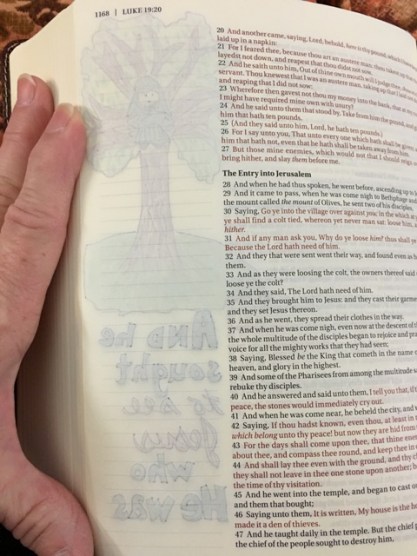 1168 | LUKE 19:20
20 And another came, saying, Lord, behold, here is thy pound, which
laid up in a napkin:
21 For I feared thee, because thou art an austere man: thou takest up
layedst not down, and reapest that thou didst not sow.
22 And he saith unto him, Out of thine own mouth will I judge thee,
servant. Thou knewest that I was an austere man, taking up that I
and reaping that I did not sow:
23 Wherefore then gavest not thou my money into the bank, that at my
I might have required mine own with usury?
24 And he said unto them that stood by, Take from him the pound, and
him that hath ten pounds.
25 (And they said unto him, Lord, he hath ten pounds.)
26 For I say unto you, That unto every one which hath shall be
him that hath not, even that he hath shall be taken away from him
27 But those mine enemies, which would not that I should reign
bring hither, and slay them before me.
The Entry into Jerusalem
28 And when he had thus spoken, he went before, ascending up to
29 And it came to pass, when he was come nigh to Bethphage and
the mount called the mount of Olives, he sent two of his disciples,
30 Saying, Go ye into the village over against you; in the which
ye shall find a colt tied, whereon yet never man sat: loose him,
hither.
31 And if any man ask you, Why do ye loose him? thus shall
Because the Lord hath need of him.
32 And they that were sent went their way, and found even as
them.
33 And as they were loosing the colt, the owners thereof said
loose ye the colt?
34 And they said, The Lord hath need of him.
35 And they brought him to Jesus: and they cast their garme
and they set Jesus thereon.
36 And as he went, they spread their clothes in the way.
37 And when he was come nigh, even now at the descent of t
the whole multitude of the disciples began to rejoice and pra
voice for all the mighty works that they had seen;
38 Saying, Blessed be the King that cometh in the name
heaven, and glory in the highest.
39 And some of the Pharisees from among the multitude
rebuke thy disciples.
40 And he answered and said unto them, I tell you that, if
peace, the stones would immediately cry out.
41 And when he was come near, he beheld the city, and
42 Saying, If thou hadst known, even thou, at least in
which belong unto thy peace! but now they are hid from
43 For the days shall come upon thee, that thine
about thee, and compass thee round, and keep thee in
44 And shall lay thee even with the ground, and thy
they shall not leave in thee one stone upon another;
the time of thy visitation.
45 And he went into the temple, and began to cast
and them that bought;
46 Saying unto them, It is written, My house is the
made it a den of thieves.
47 And he taught daily in the temple. But the chief
the chief of the people sought to destroy him.
AND he
sought
to see
Jesus
who
He was